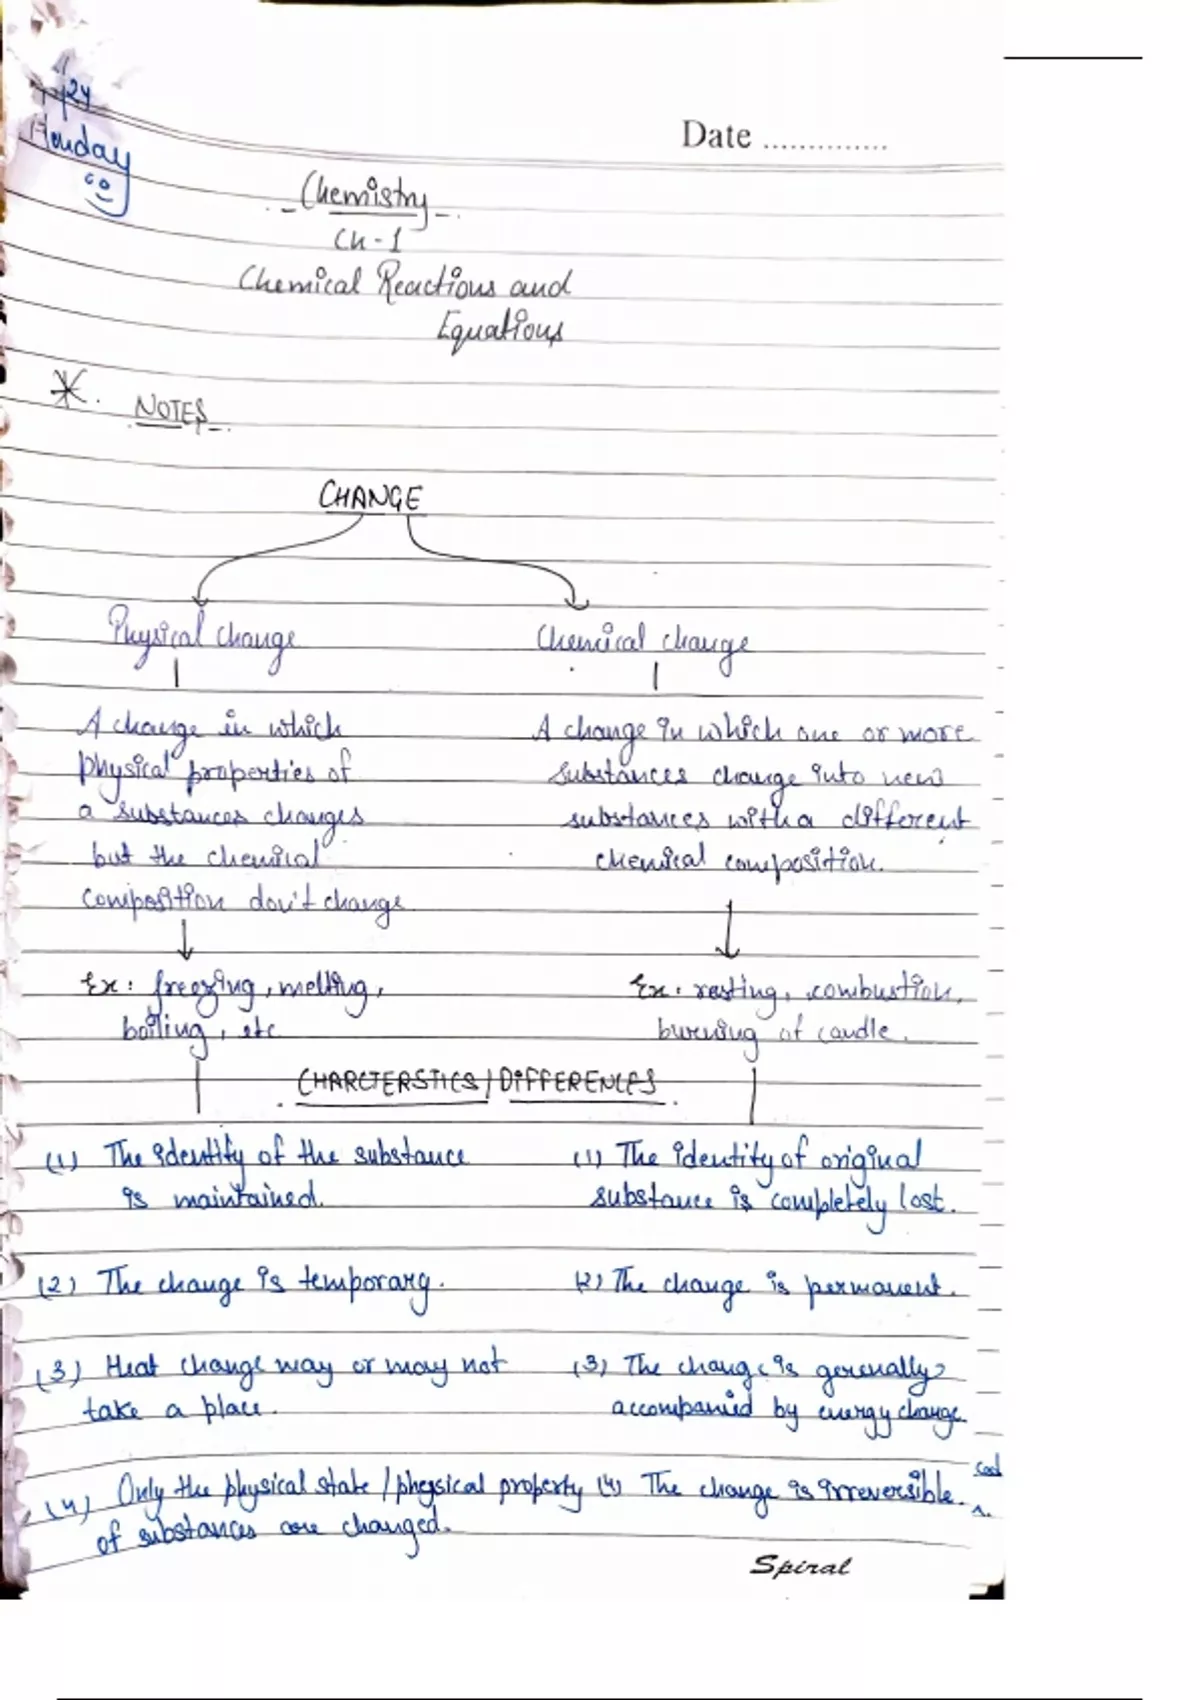 /24
Monday
Date ..............
Chemistry
Ch - 1
Chemical Reactions and
Equations
NOTES
CHANGE
Physical change
Chemical change
A change in which
physical properties of
a substances changes
but the chemical
composition don't change
A change in which one or more
substances change into new
substances with a different
chemical composition.
Ex: freezing, melting,
boiling, etc
Ex: rusting, combustion,
burning of candle.
CHARCTERSTICS/DIFFERENCES
(1) The identity of the substance
is maintained.
(1) The identity of original
substance is completely lost.
(2) The change is temporary.
(2) The change is permanent.
(3) Heat change may or may not
take a place.
(3) The change is generally
accompanied by energy change
(4) Only the physical state / physical property
of substances are changed.
(4) The change is irreversible.
Spiral